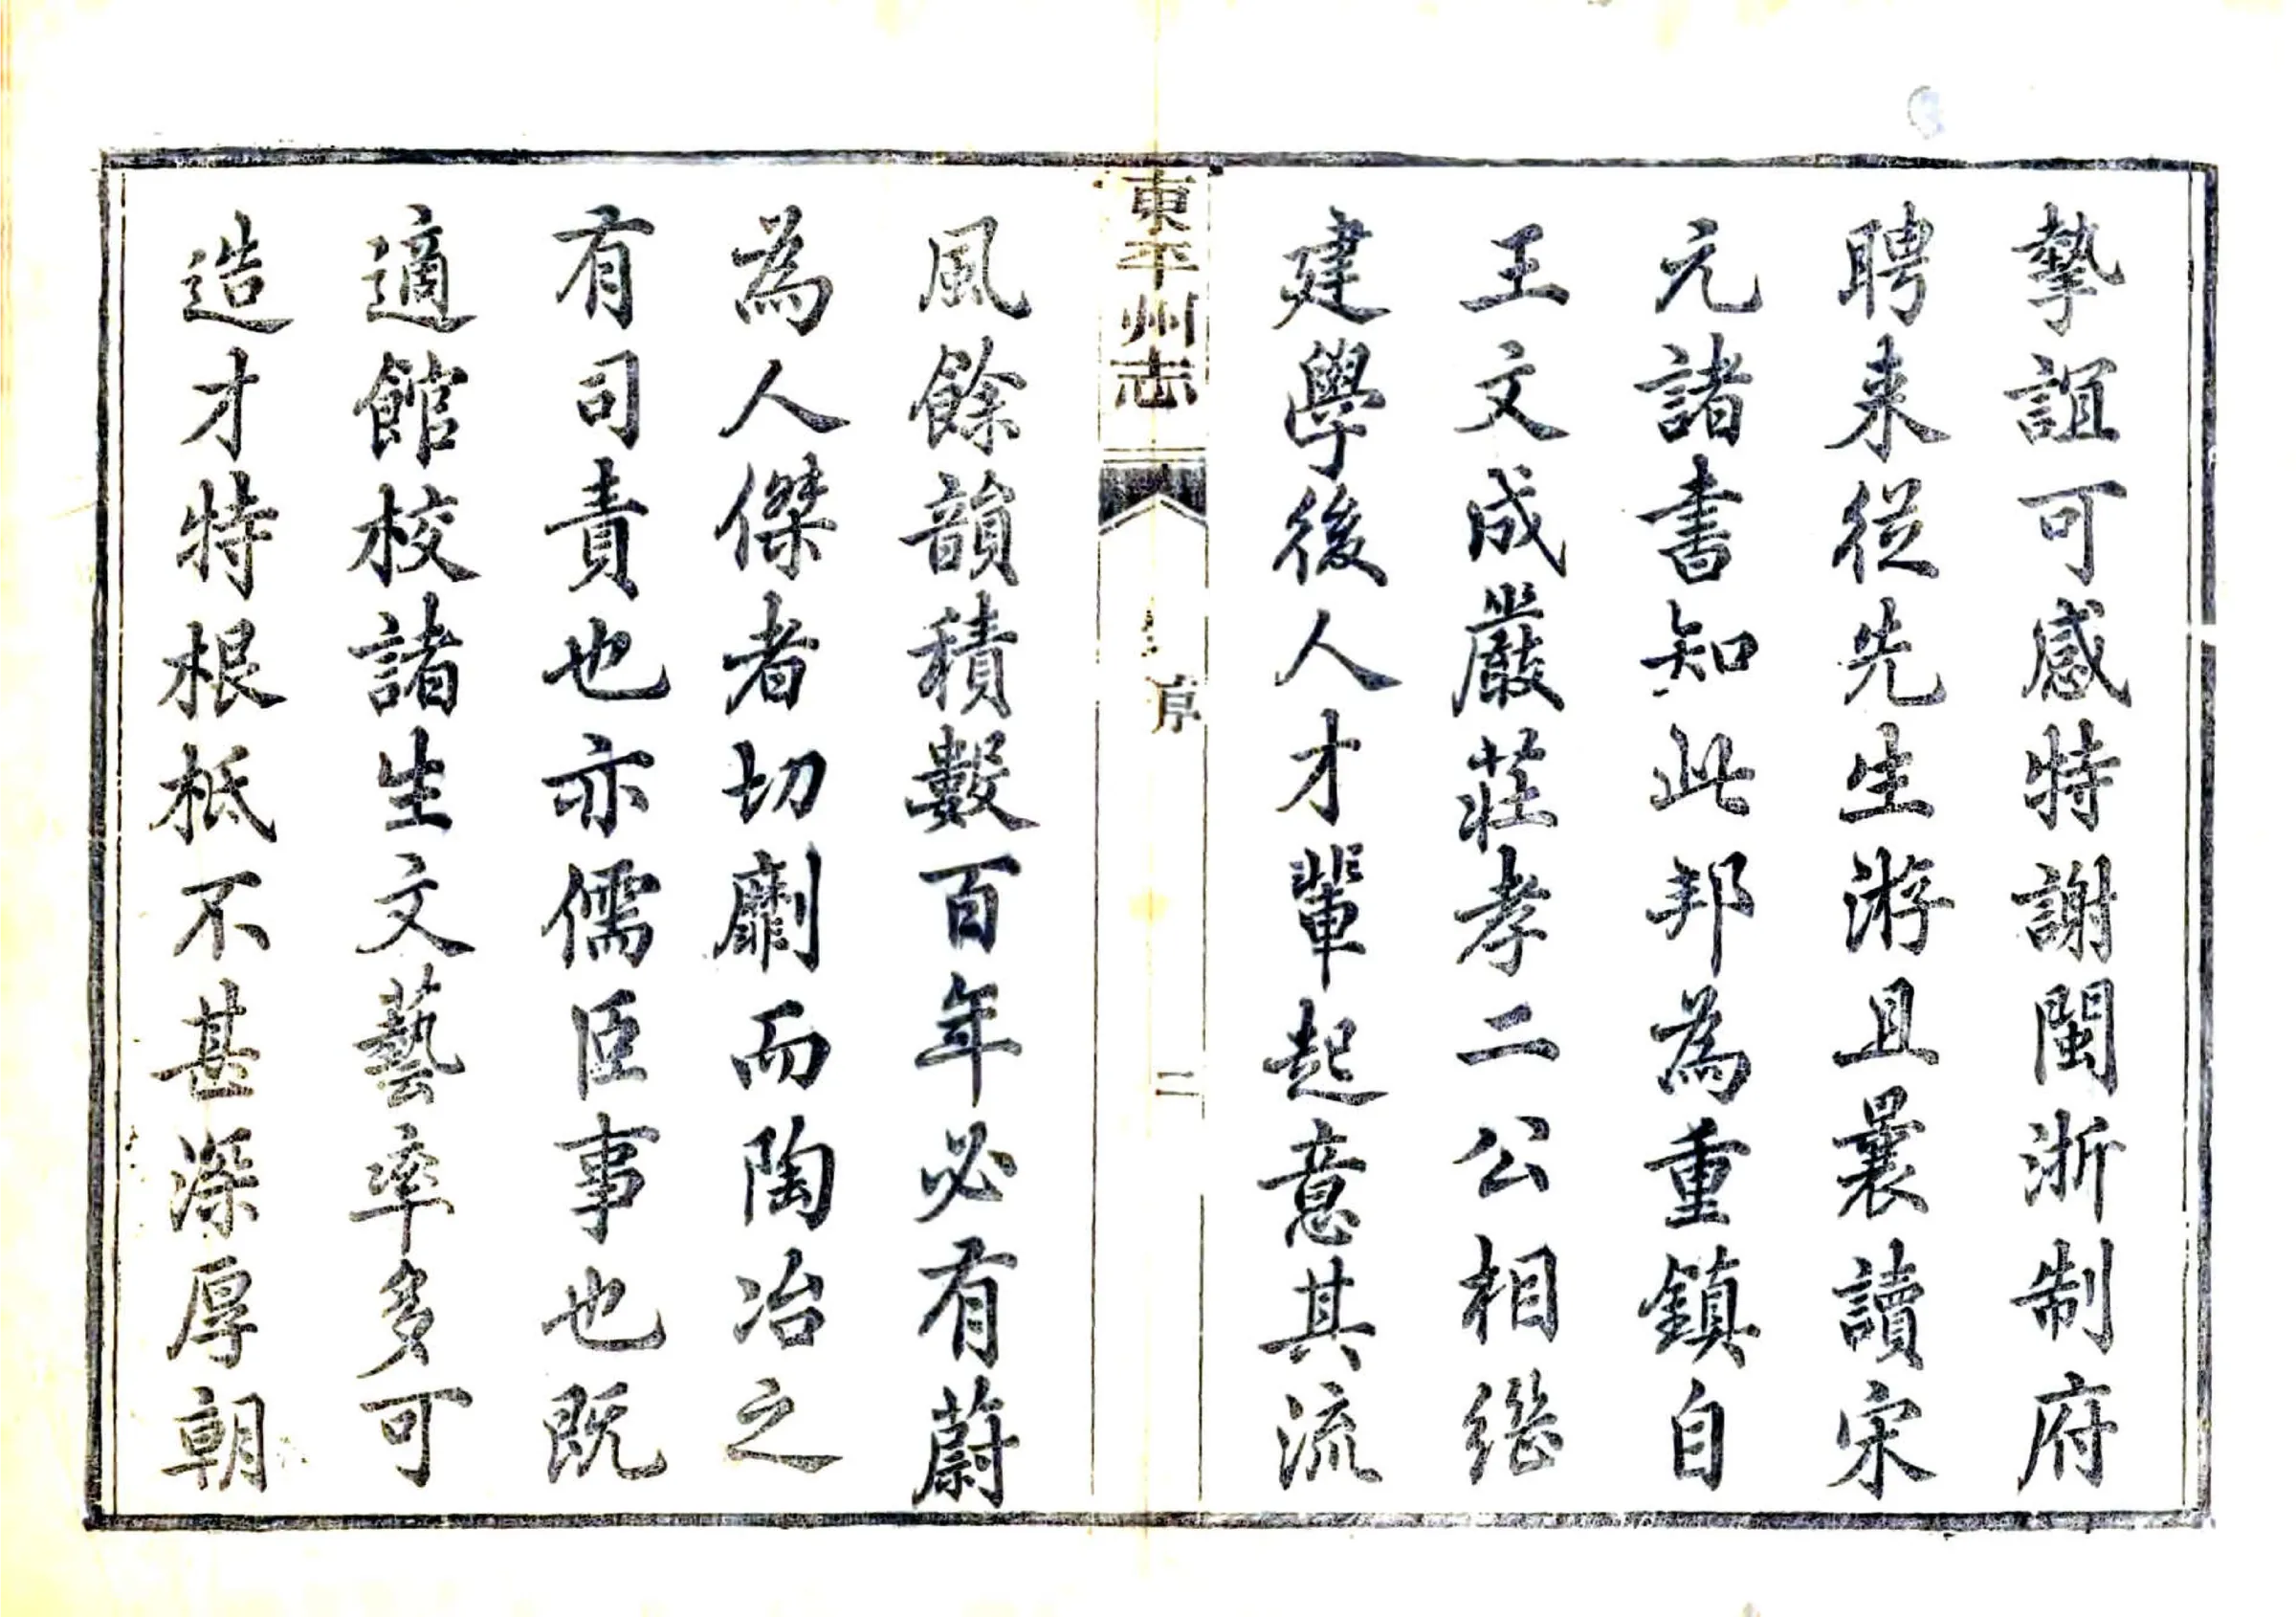 摯誼可感特謝閩浙制府
聘来從先生游且曩讀宋
元諸書知此邦為重鎮自
王文成嚴莊孝二公相継
建學後人才輩起意其流
東平州志
序
二
風餘韻積數百年必有蔚
為人傑者切劘而陶冶之
有司責也亦儒臣事也既
適館校諸生文藝率多可
造才特根柢不甚深厚朝